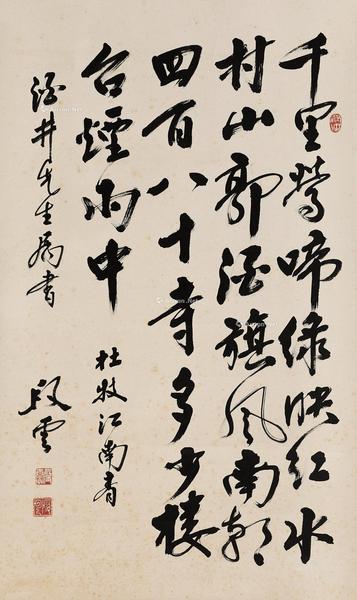 千里莺啼绿映红水
村山郭酒旗风南朝
四百八十寺多少楼
台煙雨中
杜牧江南春
酒井先生属书
段雲